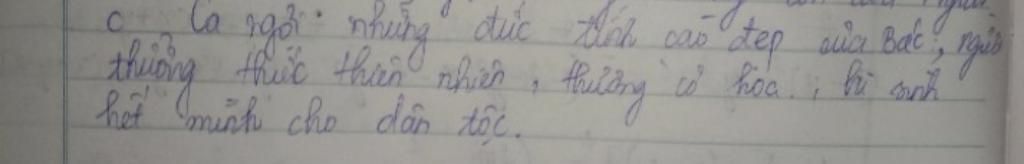 c Ca ngợi những đức tính cao đẹp của Bác, người
thưởng thức thiên nhiên, thường có hoa, hi sinh
hết mình cho dân tộc.